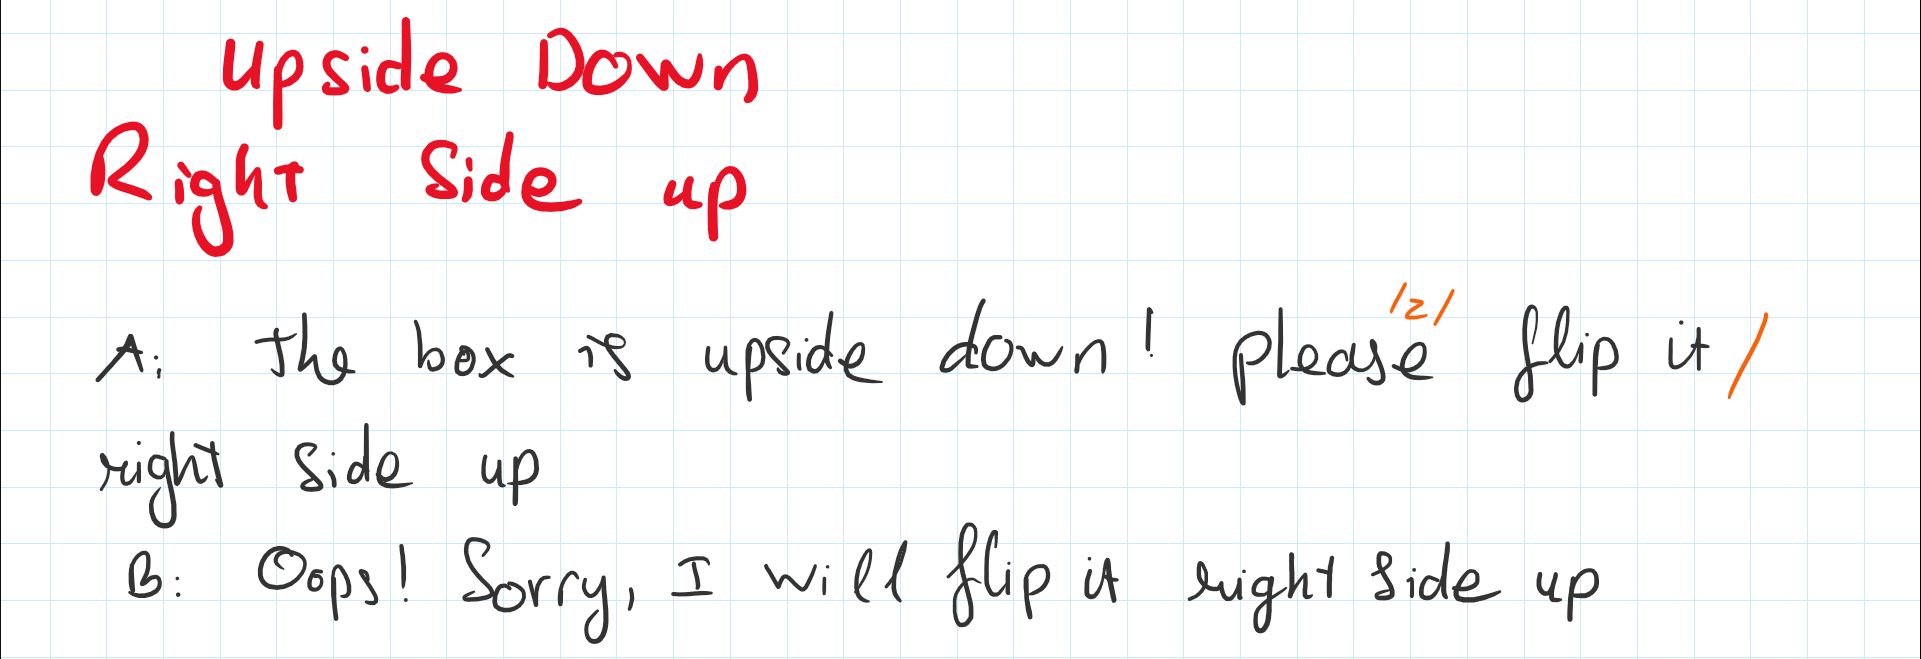 Upside Down
Right Side up
/z/
A: The box is upside down! please flip it /
right side up
B: Oops! Sorry, I will flip it right side up